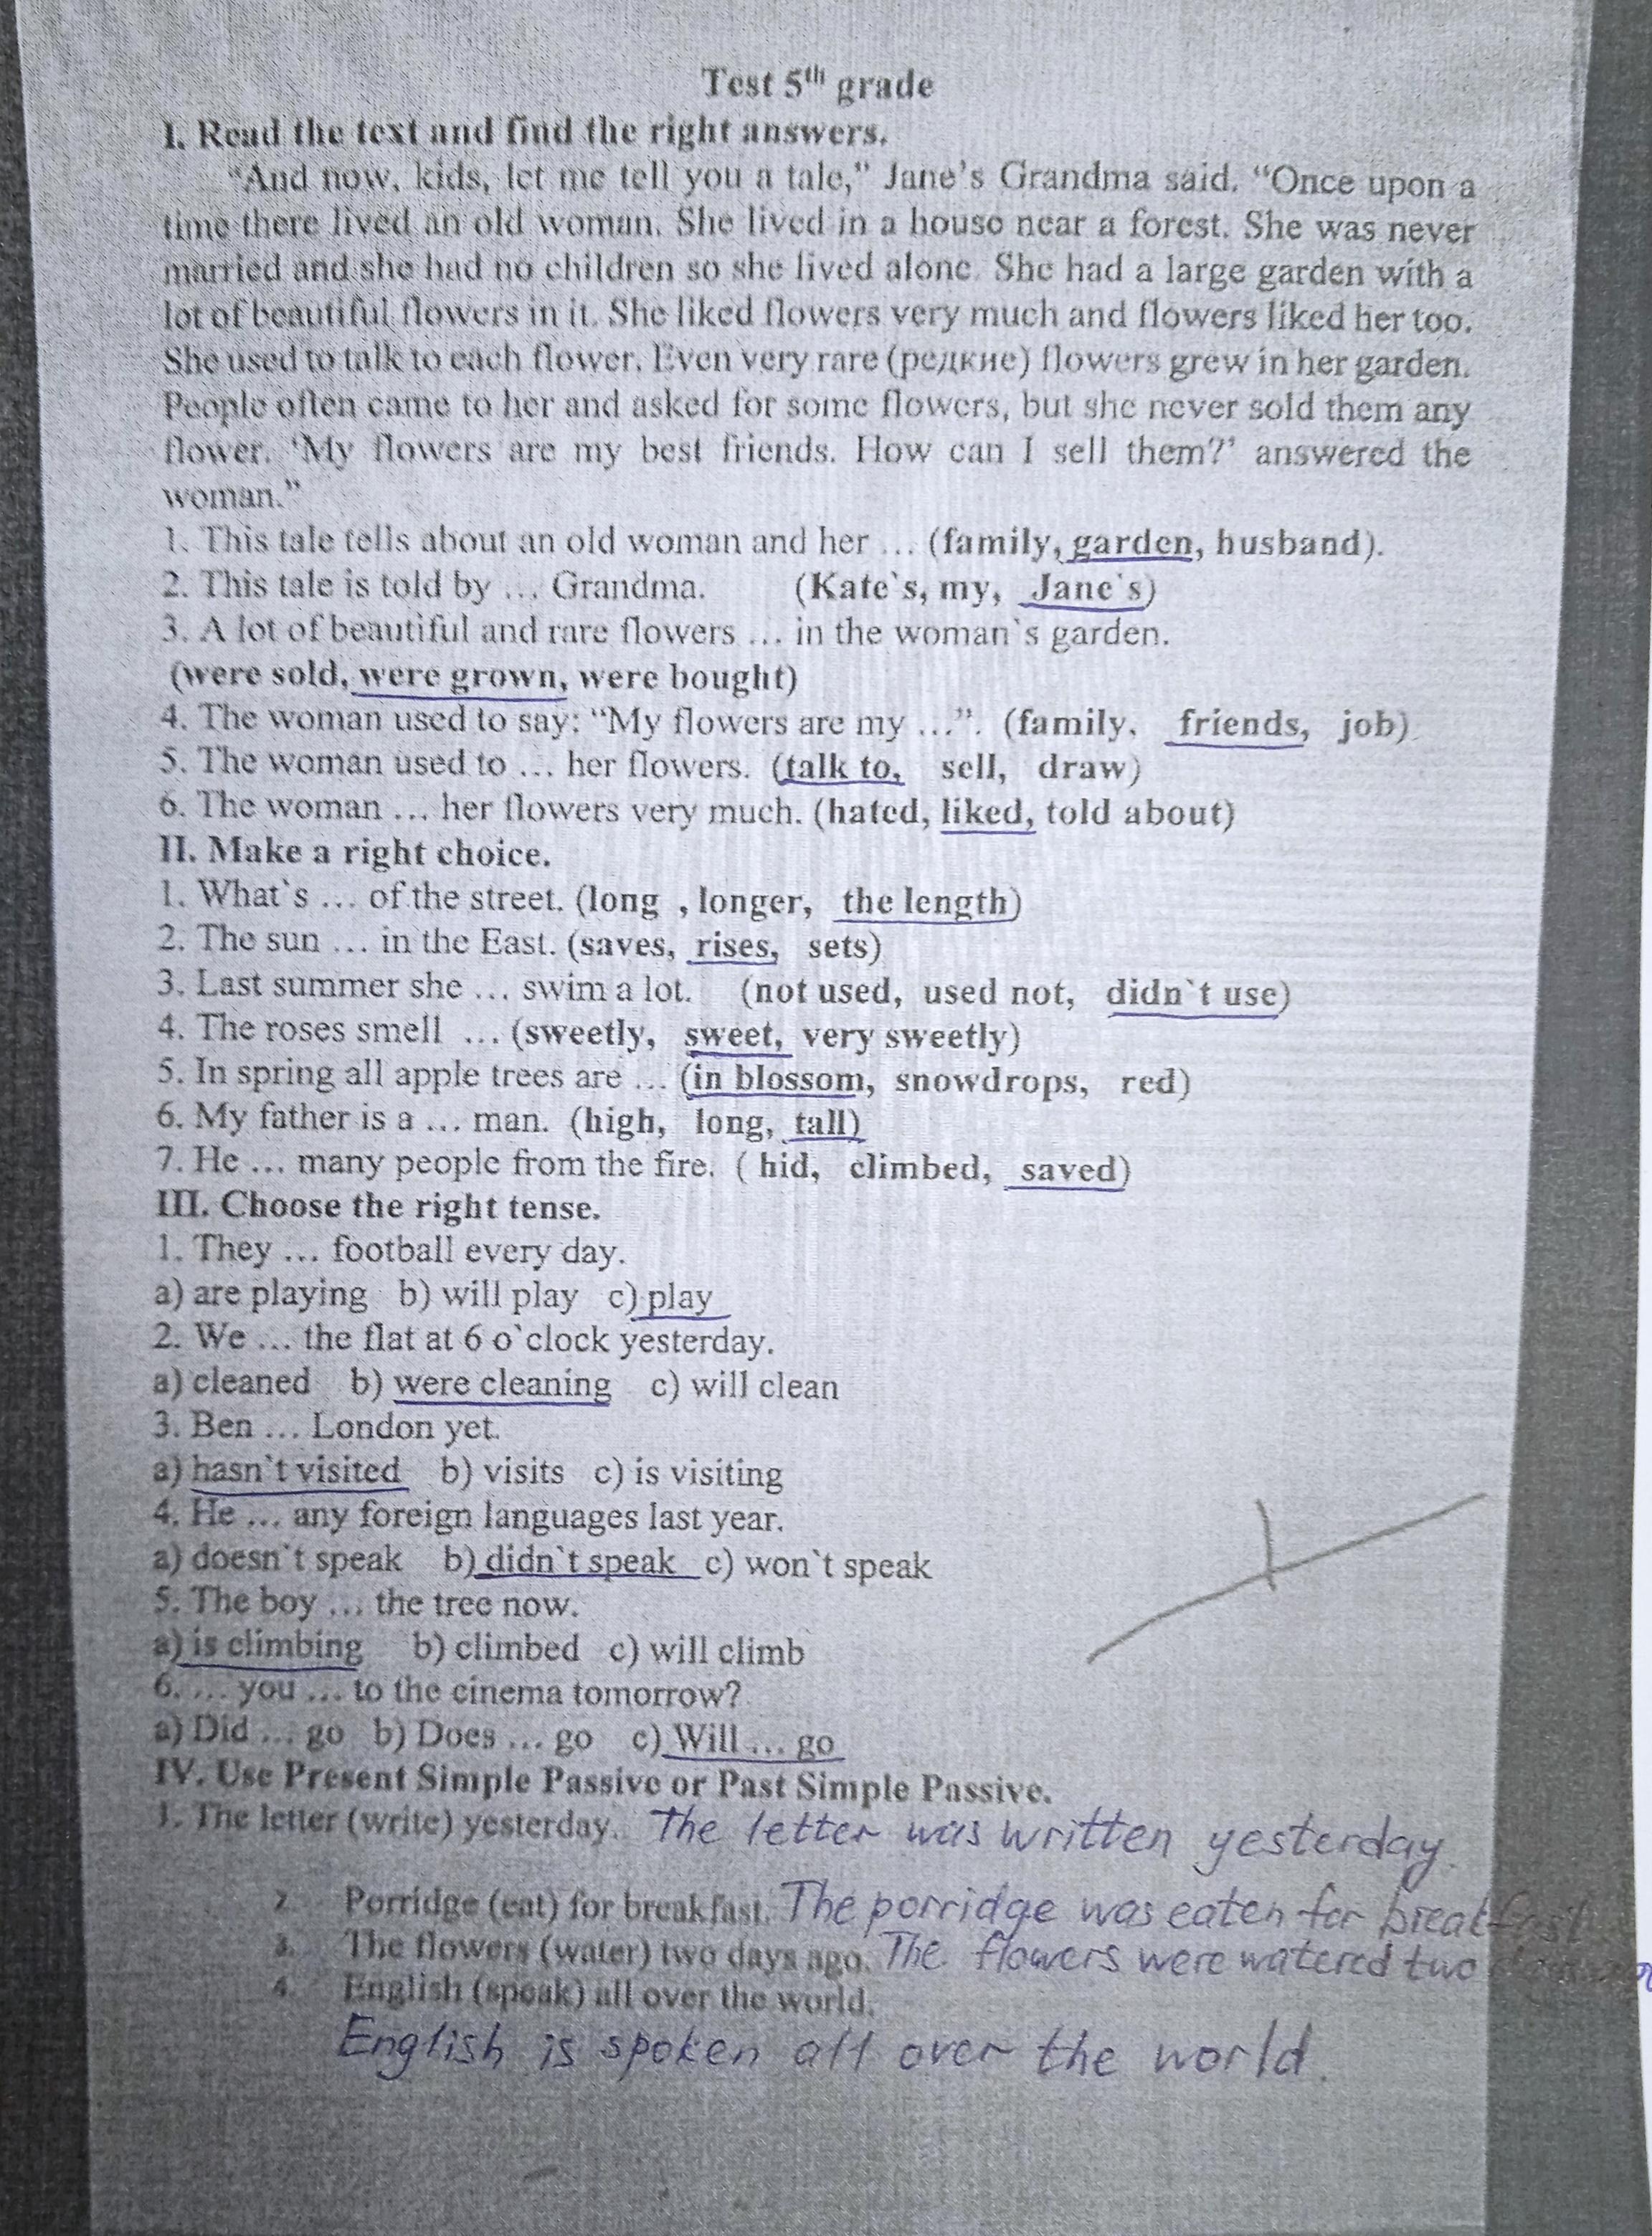 Test 5th grade
I. Read the text and find the right answers.
"And now, kids, let me tell you a tale," Jane's Grandma said. "Once upon a
time there lived an old woman. She lived in a house near a forest. She was never
married and she had no children so she lived alone. She had a large garden with a
lot of beautiful flowers in it. She liked flowers very much and flowers liked her too.
She used to talk to each flower. Even very rare (редкие) flowers grew in her garden.
People often came to her and asked for some flowers, but she never sold them any
flower. 'My flowers are my best friends. How can I sell them?' answered the
woman."
1. This tale tells about an old woman and her ... (family, garden, husband).
2. This tale is told by ... Grandma. (Kate`s, my, Jane`s)
3. A lot of beautiful and rare flowers ... in the woman`s garden.
(were sold, were grown, were bought)
4. The woman used to say: "My flowers are my ...". (family, friends, job)
5. The woman used to ... her flowers. (talk to, sell, draw)
6. The woman ... her flowers very much. (hated, liked, told about)
II. Make a right choice.
1. What`s ... of the street. (long , longer, the length)
2. The sun ... in the East. (saves, rises, sets)
3. Last summer she ... swim a lot. (not used, used not, didn`t use)
4. The roses smell ... (sweetly, sweet, very sweetly)
5. In spring all apple trees are ... (in blossom, snowdrops, red)
6. My father is a ... man. (high, long, tall)
7. He ... many people from the fire. ( hid, climbed, saved)
III. Choose the right tense.
1. They ... football every day.
a) are playing b) will play c) play
2. We ... the flat at 6 o`clock yesterday.
a) cleaned b) were cleaning c) will clean
3. Ben ... London yet.
a) hasn`t visited b) visits c) is visiting
4. He ... any foreign languages last year.
a) doesn`t speak b) didn`t speak c) won`t speak
5. The boy ... the tree now.
a) is climbing b) climbed c) will climb
6. ... you ... to the cinema tomorrow?
a) Did ... go b) Does ... go c) Will ... go
IV. Use Present Simple Passive or Past Simple Passive.
1. The letter (write) yesterday. The letter was written yesterday.
2. Porridge (eat) for breakfast. The porridge was eaten for breakfast.
3. The flowers (water) two days ago. The flowers were watered two
4. English (speak) all over the world.
English is spoken all over the world.